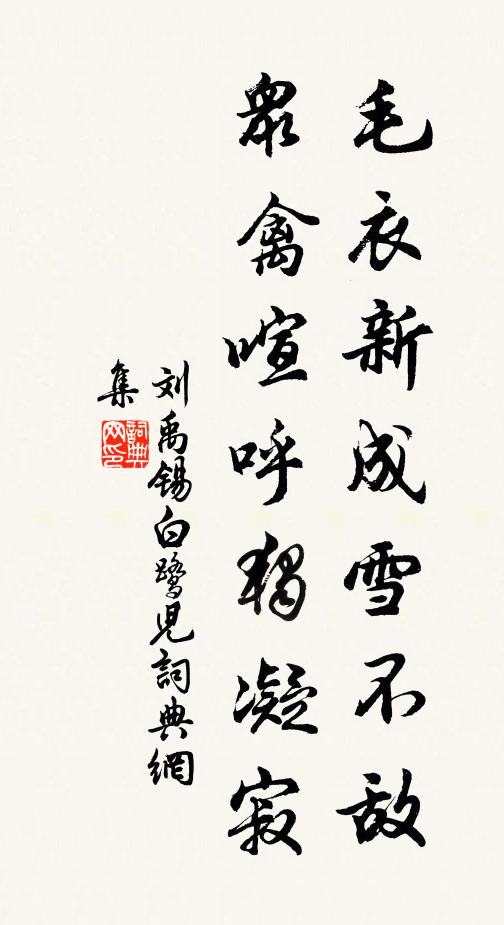 毛衣新成雪不敌
眾禽喧呼獨凝寂
刘禹锡白鹭児詞典網
集
詞典
网印